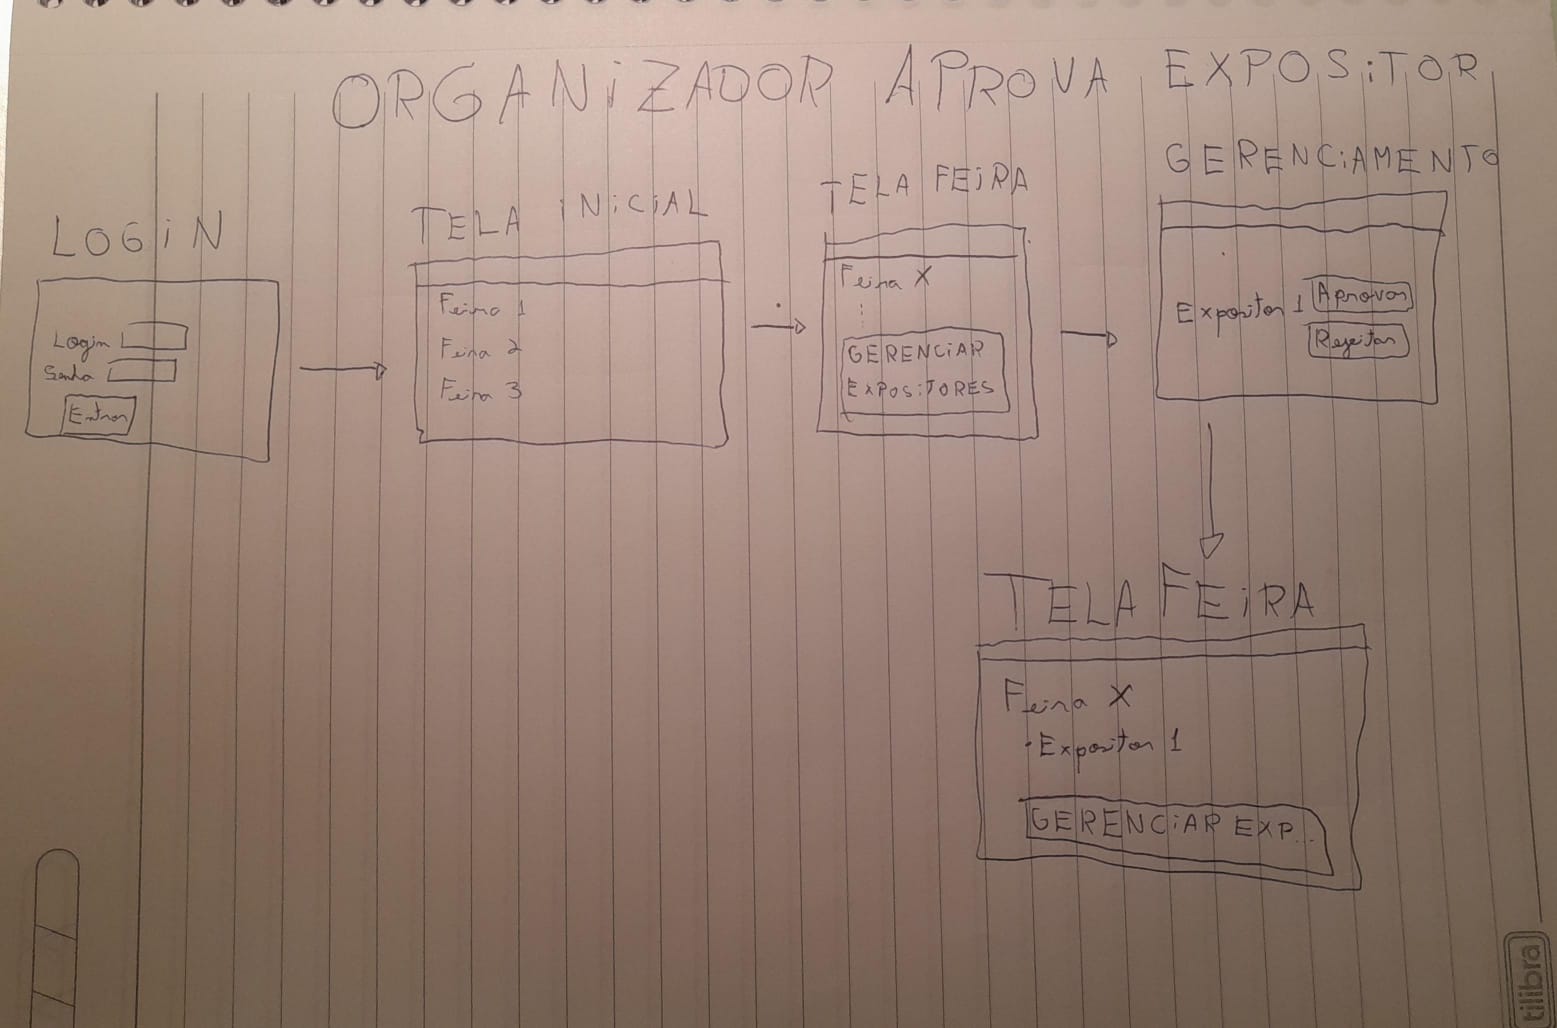 ORGANIZADOR APROVA EXPOSITOR
LOGIN
Login
Senha
Entrar
TELA INICIAL
Feira 1
Feira 2
Feira 3
TELA FEIRA
Feira X
GERENCIAR
EXPOSITORES
GERENCIAMENTO
Expositor 1
Aprovar
Rejeitar
TELA FEIRA
Feira X
· Expositor 1
GERENCIAR EXP...
tilibra